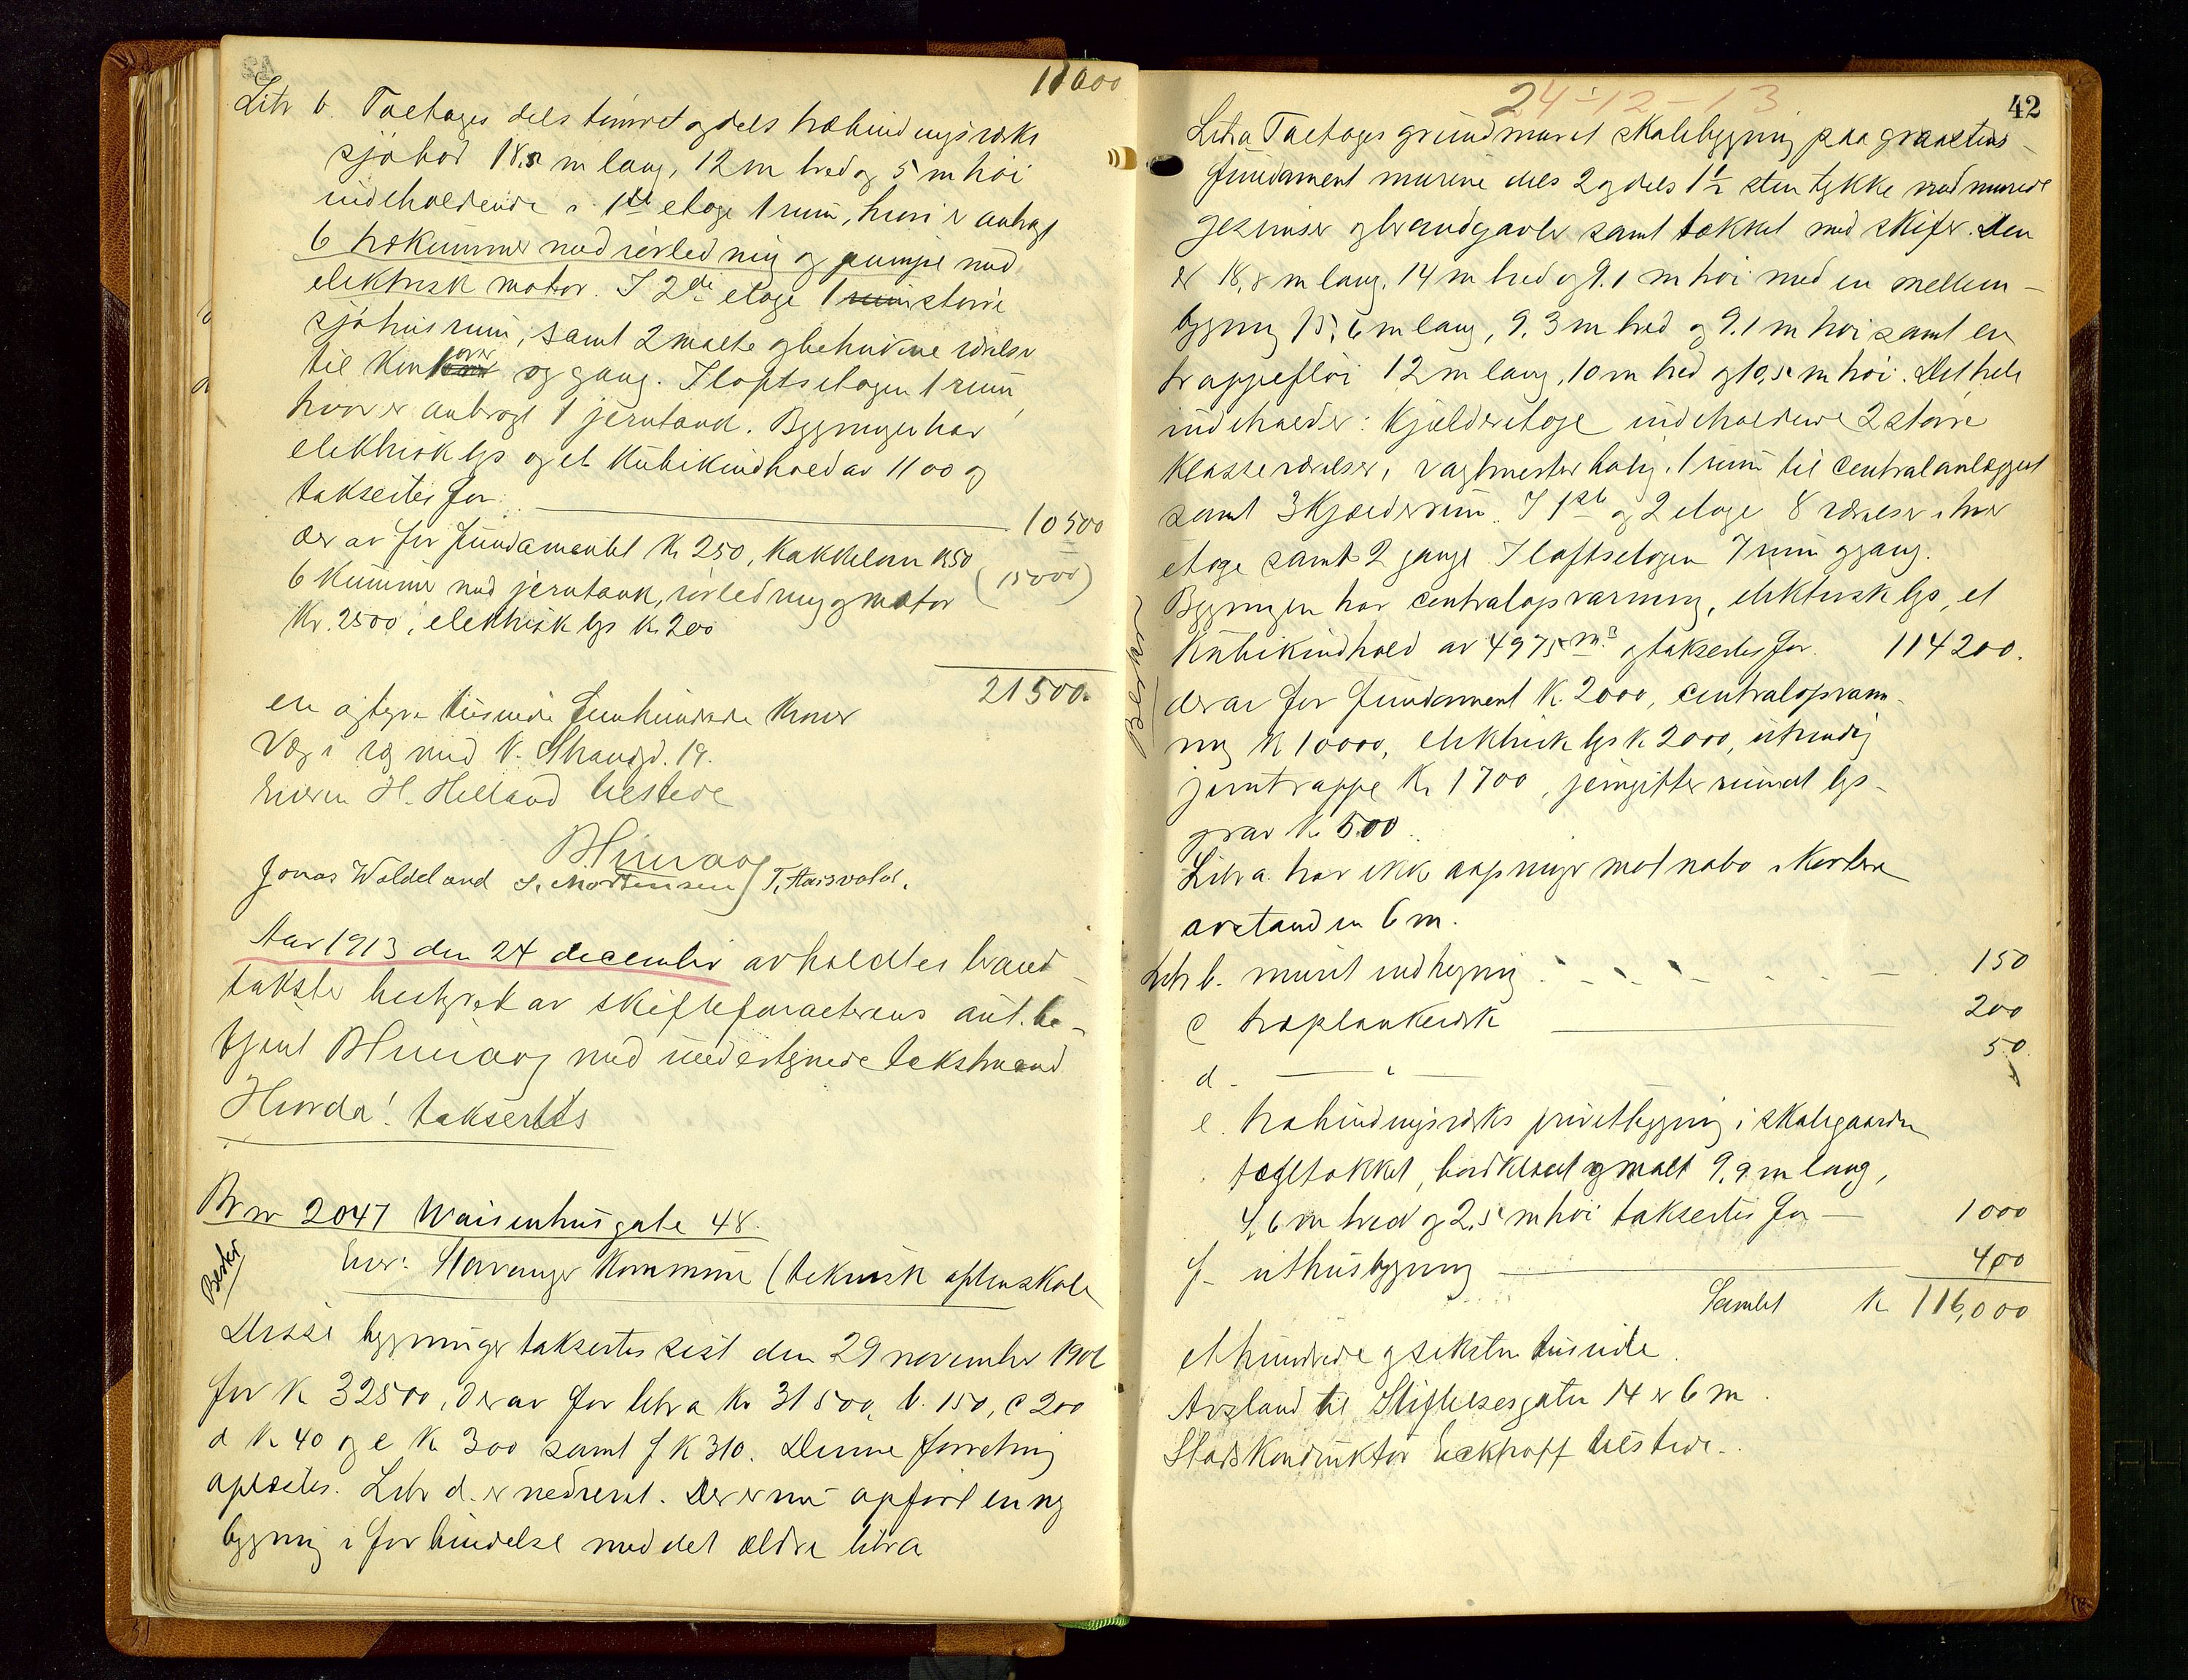 11000
Litr b. Toetages dels tømret og dels træbindingsværks
sjøbod 18.8 m lang, 12 m bred og 5 m høi
indeholdende i 1ste etage 1 rum, hvori er anbragt
6 trækummer med rørledning og pumpe med
elektrisk motor. I 2den etage 1 større
sjøhusrum, samt 2 malte og betrukne værelser
til kontorer og gang. I loftsetagen 1 rum,
hvor er anbragt 1 jerntank. Bygningen har
elektrisk lys og et kubikindhold av 1100 og
takseres for 10500
derav for fundamentet kr 250, kakkelovn kr 50
6 kummer med jerntank, rørledning og motor (15000)
kr. 2500, elektrisk lys kr. 200
21500.
en og tyve tusinde femhundrede kroner
Væg i væg med N. Strandgd. 19.
Eieren H. Helland tilstede
Jonas Waldeland S. Mortensen T. Hausvolds.
Aar 1913 den 24 december avholdtes brand-
takster bestyret av skifteforvalterens aut. be-
tjent med undertegnede takstmænd
Hvorda! takseres
Br nr 2047 Waisenhusgate 48.
Eier: Stavanger Kommune (teknisk aftenskole
Disse bygninger takseres sist den 29 november 1906
for kr 32500, derav for litr a kr 31500, b. 150, c 200
d kr 40 og e kr 300 samt f kr 310. Denne forretning
opløstes. Litr d. er nedrevet. Der er nu opført en ny
bygning i forbindelse med det ældre litr a
24-12-13
42
Litr a Toetages grundmuret skolebygning paa graastens-
fundament murene dels 2 og dels 1½ sten tykke med murede
gesimser og brandgavler samt tækket med skifer. Den
er 18,8 m lang, 14 m bred og 9.1 m høi med en mellem-
bygning 15,6 m lang, 9,3 m bred og 9.1 m høi samt en
trappefløi 12 m lang, 10 m bred og 10,5 m høi. Det hele
indeholder: Kjælderetage indeholdende 2 større
klasseværelser, vagtmesterbolig, 1 rum til centralanlægget
samt 3 kjælderrum. I 1ste og 2 etage 8 værelser i hver
etage samt 2 gange. I loftsetagen 7 rum og gang.
Bygningen har centralopvarming, elektrisk lys, et
kubikindhold av 4975 m3. og takseres for. 114200.
derav for fundament kr. 2000, centralopvarm-
ning kr 10000, elektrisk lys kr 2000, utvendig
jerntrappe kr. 1700, jerngitter rundt lys-
grav kr. 500.
Litr a. har ikke aapninger mot nabo i kortere
avstand en 6 m.
Litr b. muret indhegning 150
c træplankeverk 200
d - " - 50
e. træbindingsverks privetbygning i skolegaarden
tegltækket, bordklædt og malt 9,9 m lang,
4,6 m bred og 2,5 m høi takseres for — 1000
f- uthusbygning 400
Samlet kr 116,000
ethundrede og seksten tusinde.
Avstand til Stiftelsesgaten 14 er 6 m.
Stadskonduktør Eckhoff tilstede.